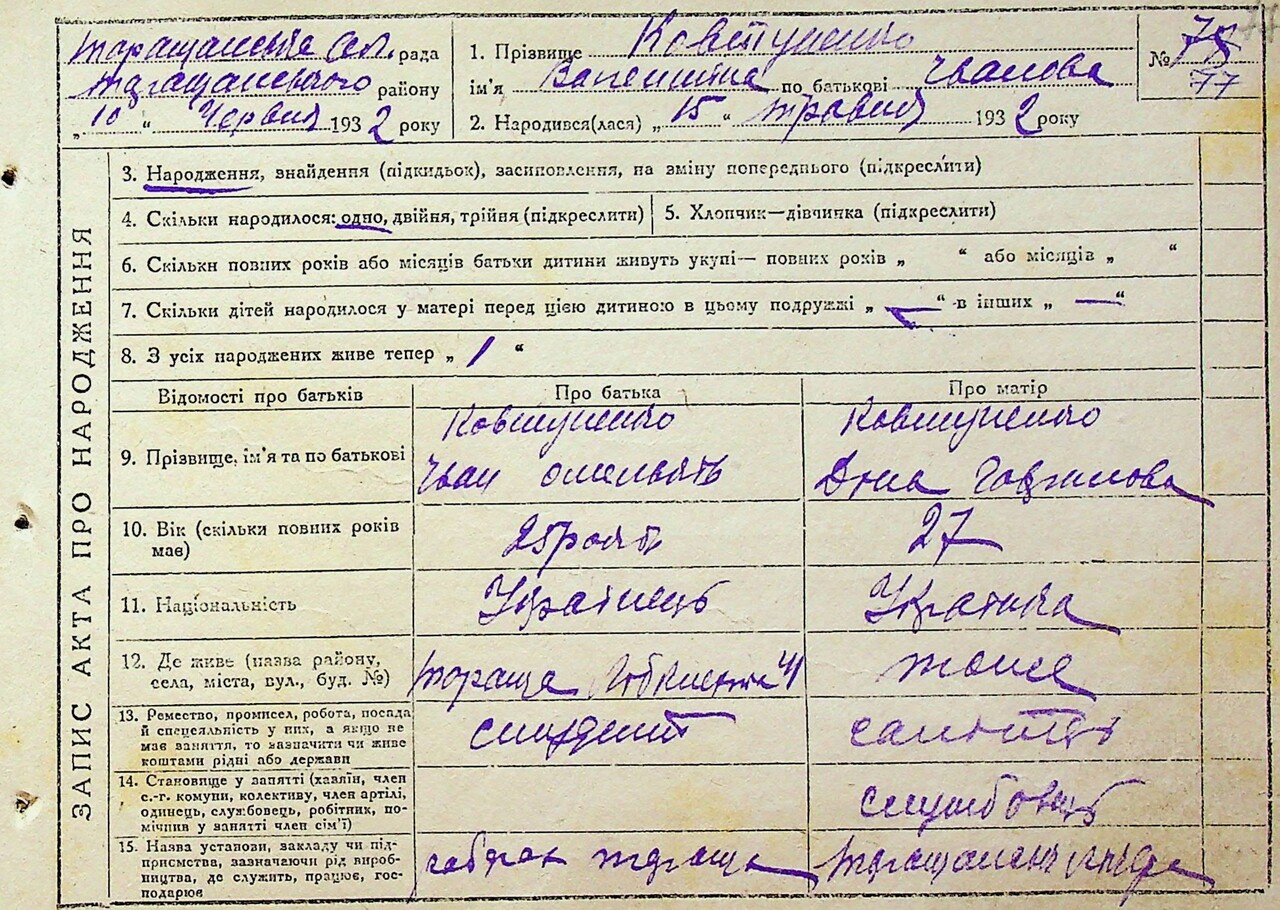 Таращанська сел. рада
Таращанського району
„10“ Червня 1932 року
1. Прізвище Ковтуненко
ім'я Валентина по батькові Іванова
2. Народився(лася) „15“ травня 1932 року
№ 78
77
ЗАПИС АКТА ПРО НАРОДЖЕННЯ
3. Народження, знайдення (підкидьок), засиновлення, на зміну попереднього (підкреслити)
4. Скільки народилося: одно, двійня, трійня (підкреслити)
5. Хлопчик—дівчинка (підкреслити)
6. Скільки повних років або місяців батьки дитини живуть укупі— повних років „ “ або місяців „ “
7. Скільки дітей народилося у матері перед цією дитиною в цьому подружжі „—“ в інших „—“
8. З усіх народжених живе тепер „1“
Відомості про батьків
Про батька
Про матір
9. Прізвище, ім'я та по батькові
Ковтуненко
Іван
Ковтуненко
10. Вік (скільки повних років
має)
25 років
27
11. Національність
Українець
Українка
12. Де живе (назва району,
села, міста, вул., буд. №)
Тараща 41
тоже
13. Ремество, промисел, робота, посада
й спеціяльність у них, а якщо не
має заняття, то зазначити чи живе
коштами рідні або держави
студент
14. Становище у занятті (хазяїн, член
с.-г. комуни, колективу, член артілі,
одинець, службовець, робітник, по-
мічник у занятті член сім'ї)
службовець
15. Назва установи, закладу чи під-
приємства, зазначаючи рід вироб-
ництва, де служить, працює, гос-
подарює
Тараща